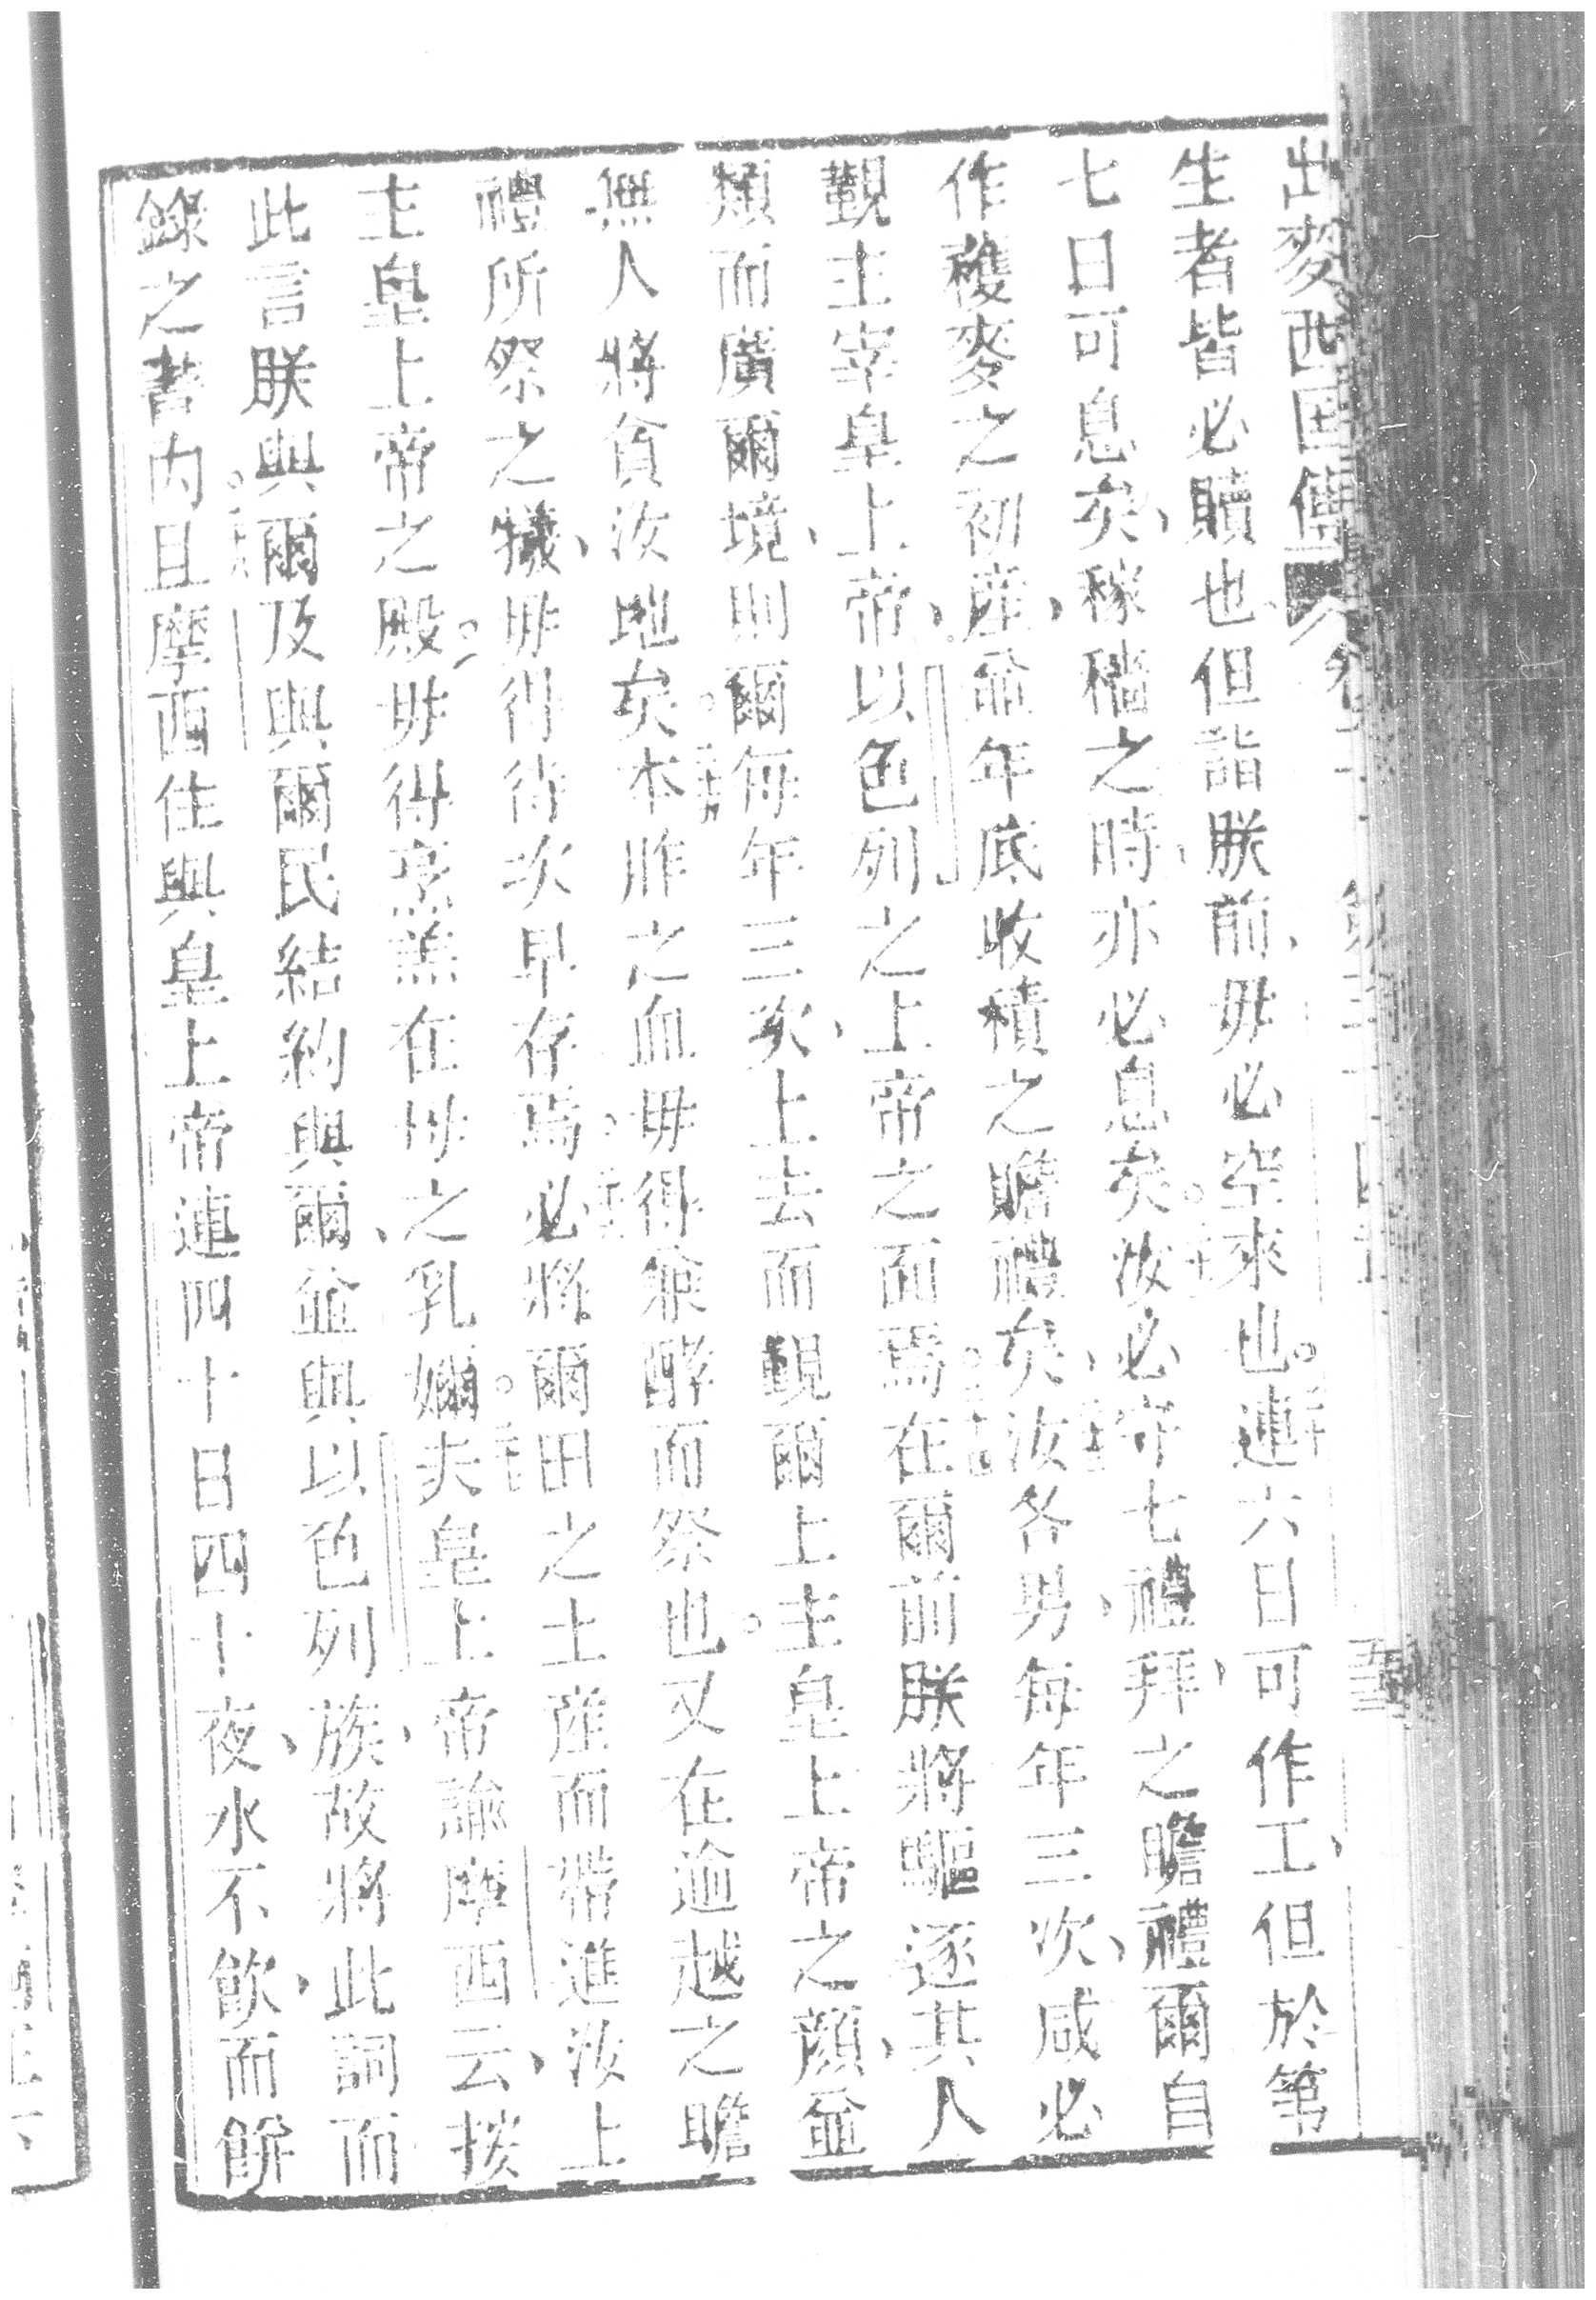 出麥西國傳
生者皆必贖也但詣朕前、毋必空來也。連六日可作工、但於第
七日可息矣、稼穡之時、亦必息矣。汝必守七禮拜、之瞻禮爾自
作穫麥之初產、並年底收積之瞻禮矣、汝各男、每年三次、咸必
覲主宰皇上帝、以色列之上帝之面焉。在爾前朕將驅逐其人
類而廣爾境、則爾每年三次、上去而覲爾上主皇上帝之顏、並
無人將貪汝地矣。本胙之血毋得兼酵而祭也。又在逾越之瞻
禮所祭之犧、毋得待次早存焉。必將爾田之土產而帶進汝上
主皇上帝之殿。毋得烹羔在母之乳爛。夫皇上帝諭摩西云、按
此言朕與爾及與爾民結約與爾、並與以色列族、故將此詞而
錄之書內。且摩西住與皇上帝連四十日四十夜、水不飲、而餅